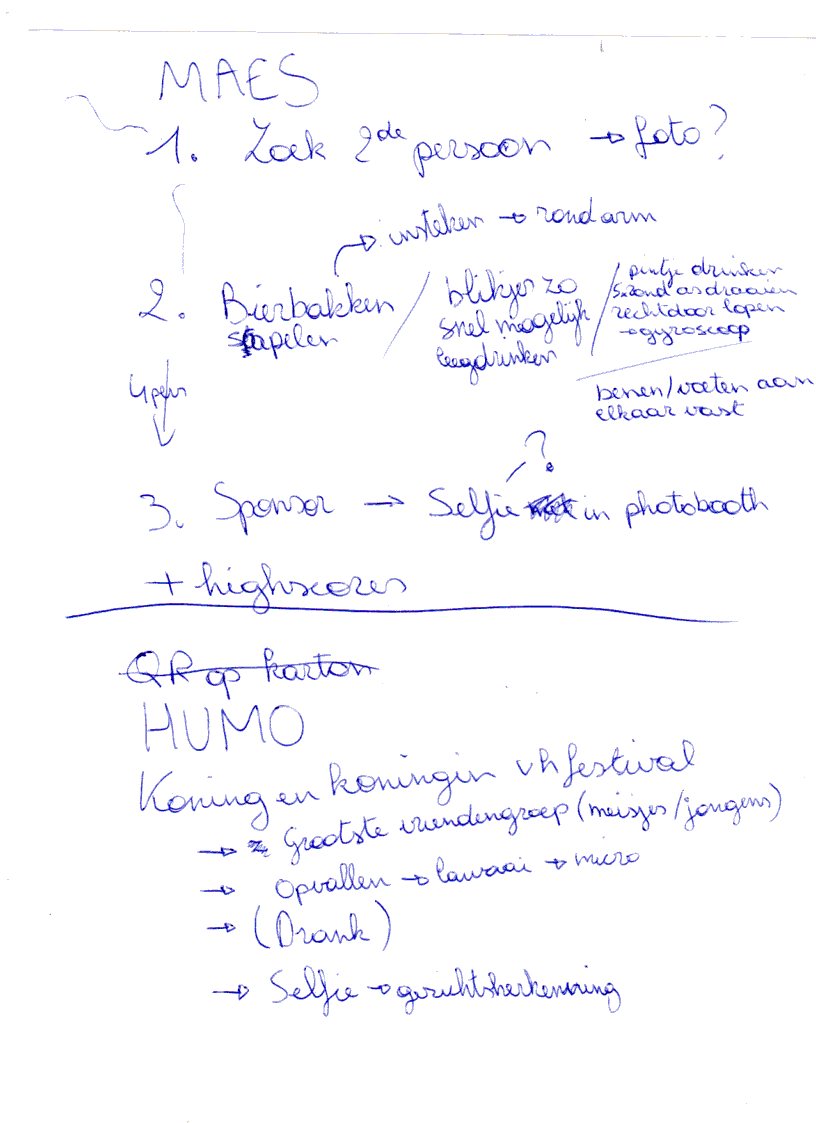 MAES
1. Zoek 2de persoon → foto?
→ insteken → rond arm
2. Bierbakken / blikjes zo / pintje drinken
stapelen snel mogelijk 5x rond as draaien
leegdrinken rechtdoor lopen
→ gyroscoop
benen/voeten aan
elkaar vast
4 pers
?
3. Sponsor → Selfie in photobooth
+ highscores
QR op karton
HUMO
Koning en koningin vh festival
→ Grootste vriendengroep (meisjes/jongens)
→ Opvallen → lawaai → micro
→ (Drank)
→ Selfie → gezichtsherkenning